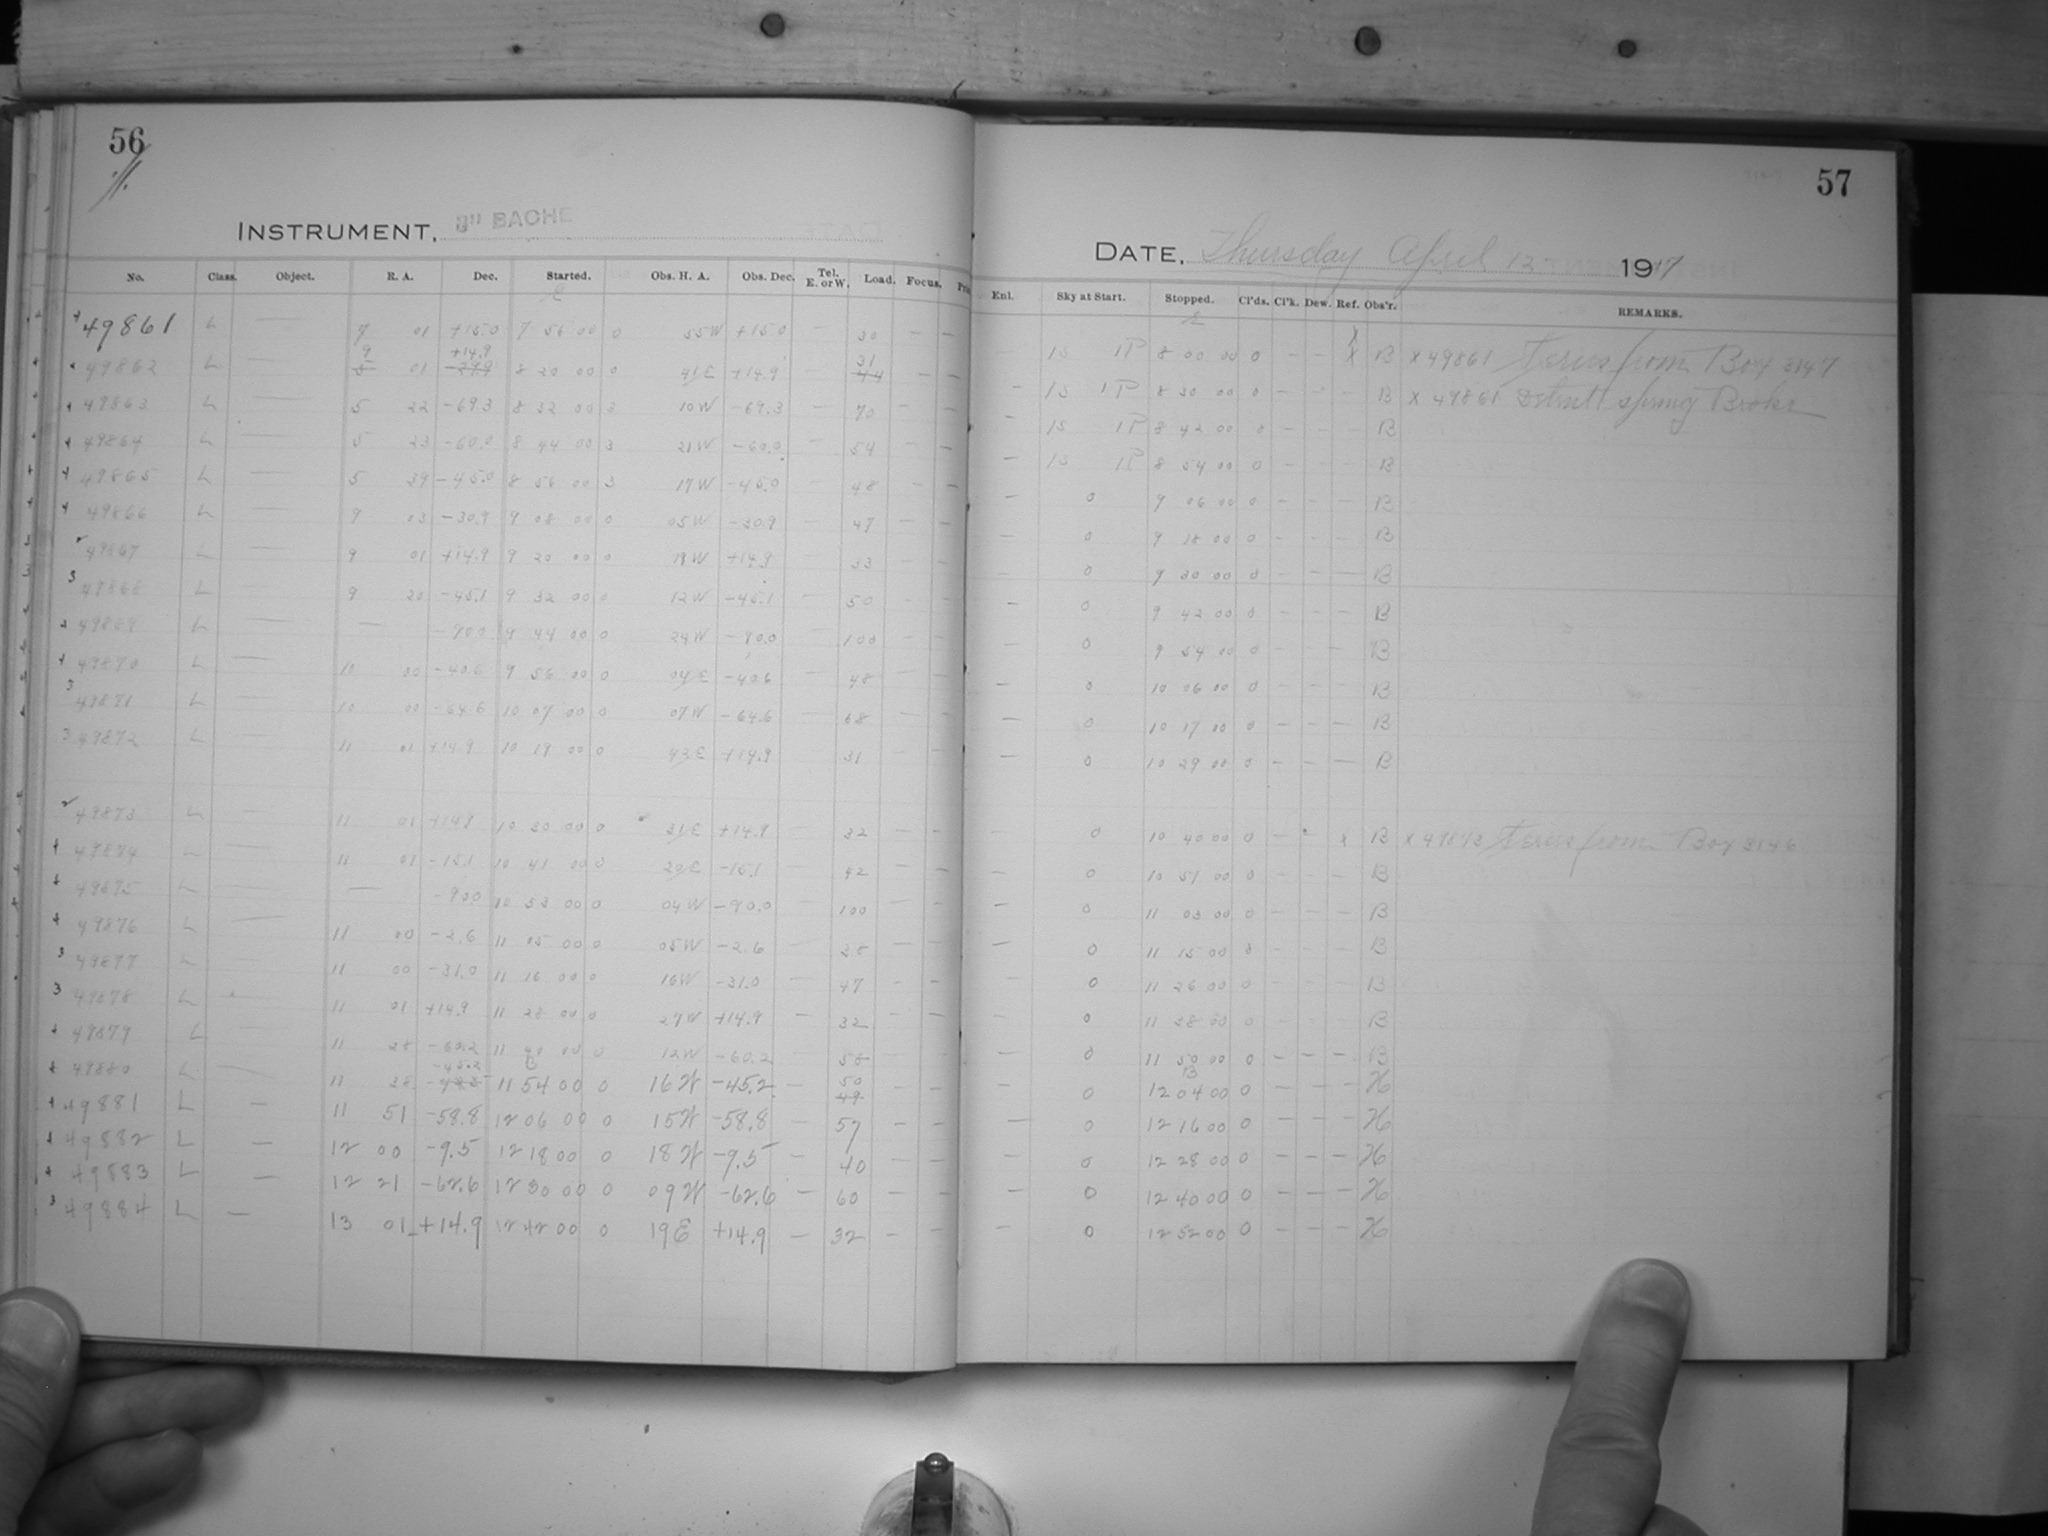 56
INSTRUMENT, 8" BACHE
No. Class. Object. R. A. Dec. Started. Obs. H. A. Obs. Dec. Tel. E. or W. Load. Focus.
49861 L — 7 01 +15.0 7 56 00 0 55W +15.0 — 30 — —
49862 L — 9 01 +14.9 8 20 00 0 41E +14.9 — 31 — —
49863 L — 5 22 -69.3 8 32 00 3 10W -69.3 — 70 — —
49864 L — 5 23 -60.0 8 44 00 3 21W -60.0 — 54 — —
49865 L — 5 39 -45.0 8 56 00 3 17W -45.0 — 48 — —
49866 L — 9 03 -30.9 9 08 00 0 05W -30.9 — 47 — —
49867 L — 9 01 +14.9 9 20 00 0 19W +14.9 — 33 — —
49868 L — 9 20 -45.1 9 32 00 0 12W -45.1 — 50 — —
49869 L — — -90.0 9 44 00 0 24W -90.0 — 100 — —
49870 L — 10 00 -40.6 9 56 00 0 04E -40.6 — 48 — —
49871 L — 10 00 -64.6 10 07 00 0 07W -64.6 — 68 — —
49872 L — 11 01 +14.9 10 19 00 0 42E +14.9 — 31 — —
49873 L — 11 01 +14.9 10 30 00 0 31E +14.9 — 32 — —
49874 L — 11 01 -15.1 10 41 00 0 20E -15.1 — 42 — —
49875 L — — -90.0 10 53 00 0 04W -90.0 — 100 — —
49876 L — 11 00 -2.6 11 05 00 0 05W -2.6 — 38 — —
49877 L — 11 00 -31.0 11 16 00 0 16W -31.0 — 47 — —
49878 L — 11 01 +14.9 11 28 00 0 27W +14.9 — 32 — —
49879 L — 11 28 -60.2 11 40 00 0 12W -60.2 — 58 — —
49880 L — 11 38 -45.2 11 54 00 0 16W -45.2 — 50 — —
49881 L — 11 51 -58.8 12 06 00 0 15W -58.8 — 57 — —
49882 L — 12 00 -9.5 12 18 00 0 18W -9.5 — 40 — —
49883 L — 12 21 -62.6 12 30 00 0 09W -62.6 — 60 — —
49884 L — 13 01 +14.9 12 42 00 0 19E +14.9 — 32 — —
57
DATE, Thursday April 12 1917
Enl. Sky at Start. Stopped. Cl'ds. Cl'k. Dew. Ref. Obs'r. REMARKS.
— 1S 1P 8 00 00 0 — — X B X 49861 from Box 3147
— 1S 1P 8 30 00 0 — — — B X 49861 spring Broke
1S 1P 8 42 00 0 — — — B
— 1S 1P 8 54 00 0 — — — B
— 0 9 06 00 0 — — — B
0 9 18 00 0 — — — B
— 0 9 30 00 0 — — — B
— 0 9 42 00 0 — — — B
0 9 54 00 0 — — — B
— 0 10 06 00 0 — — — B
— 0 10 17 00 0 — — — B
— 0 10 29 00 0 — — — B
— 0 10 40 00 0 — — x B X 49873 from Box 3146
— 0 10 51 00 0 — — — B
— 0 11 03 00 0 — — — B
— 0 11 15 00 0 — — — B
— 0 11 26 00 0 — — — B
— 0 11 38 00 0 — — — B
— 0 11 50 00 0 — — — B
0 12 04 00 0 H
— 0 12 16 00 0 — — — H
0 12 28 00 0 — — — H
— 0 12 40 00 0 — — — H
— 0 12 52 00 0 — — — H